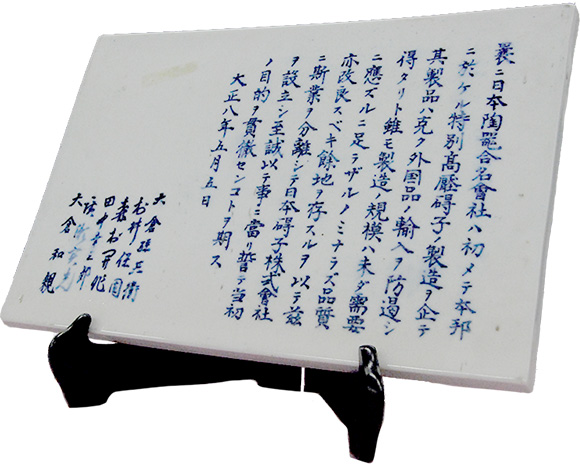 曩ニ日本陶器合名會社ハ初メテ本邦
ニ於ケル特別高壓碍子ノ製造ヲ企テ
其製品ハ克ク外国品ノ輸入ヲ防遏シ
得タリト雖モ製造ノ規模ハ未ダ需要
ニ應ズルニ足ラザルノミナラズ品質
亦改良スベキ餘地ヲ存スルヲ以テ茲
ニ斯業ヲ分離シテ日本碍子株式會社
ヲ設立シ至誠以テ事ニ當リ誓テ当初
ノ目的ヲ貫徹センコトヲ期ス
大正八年五月五日
大倉孫兵衛
村井保固
森村開作
大倉和親